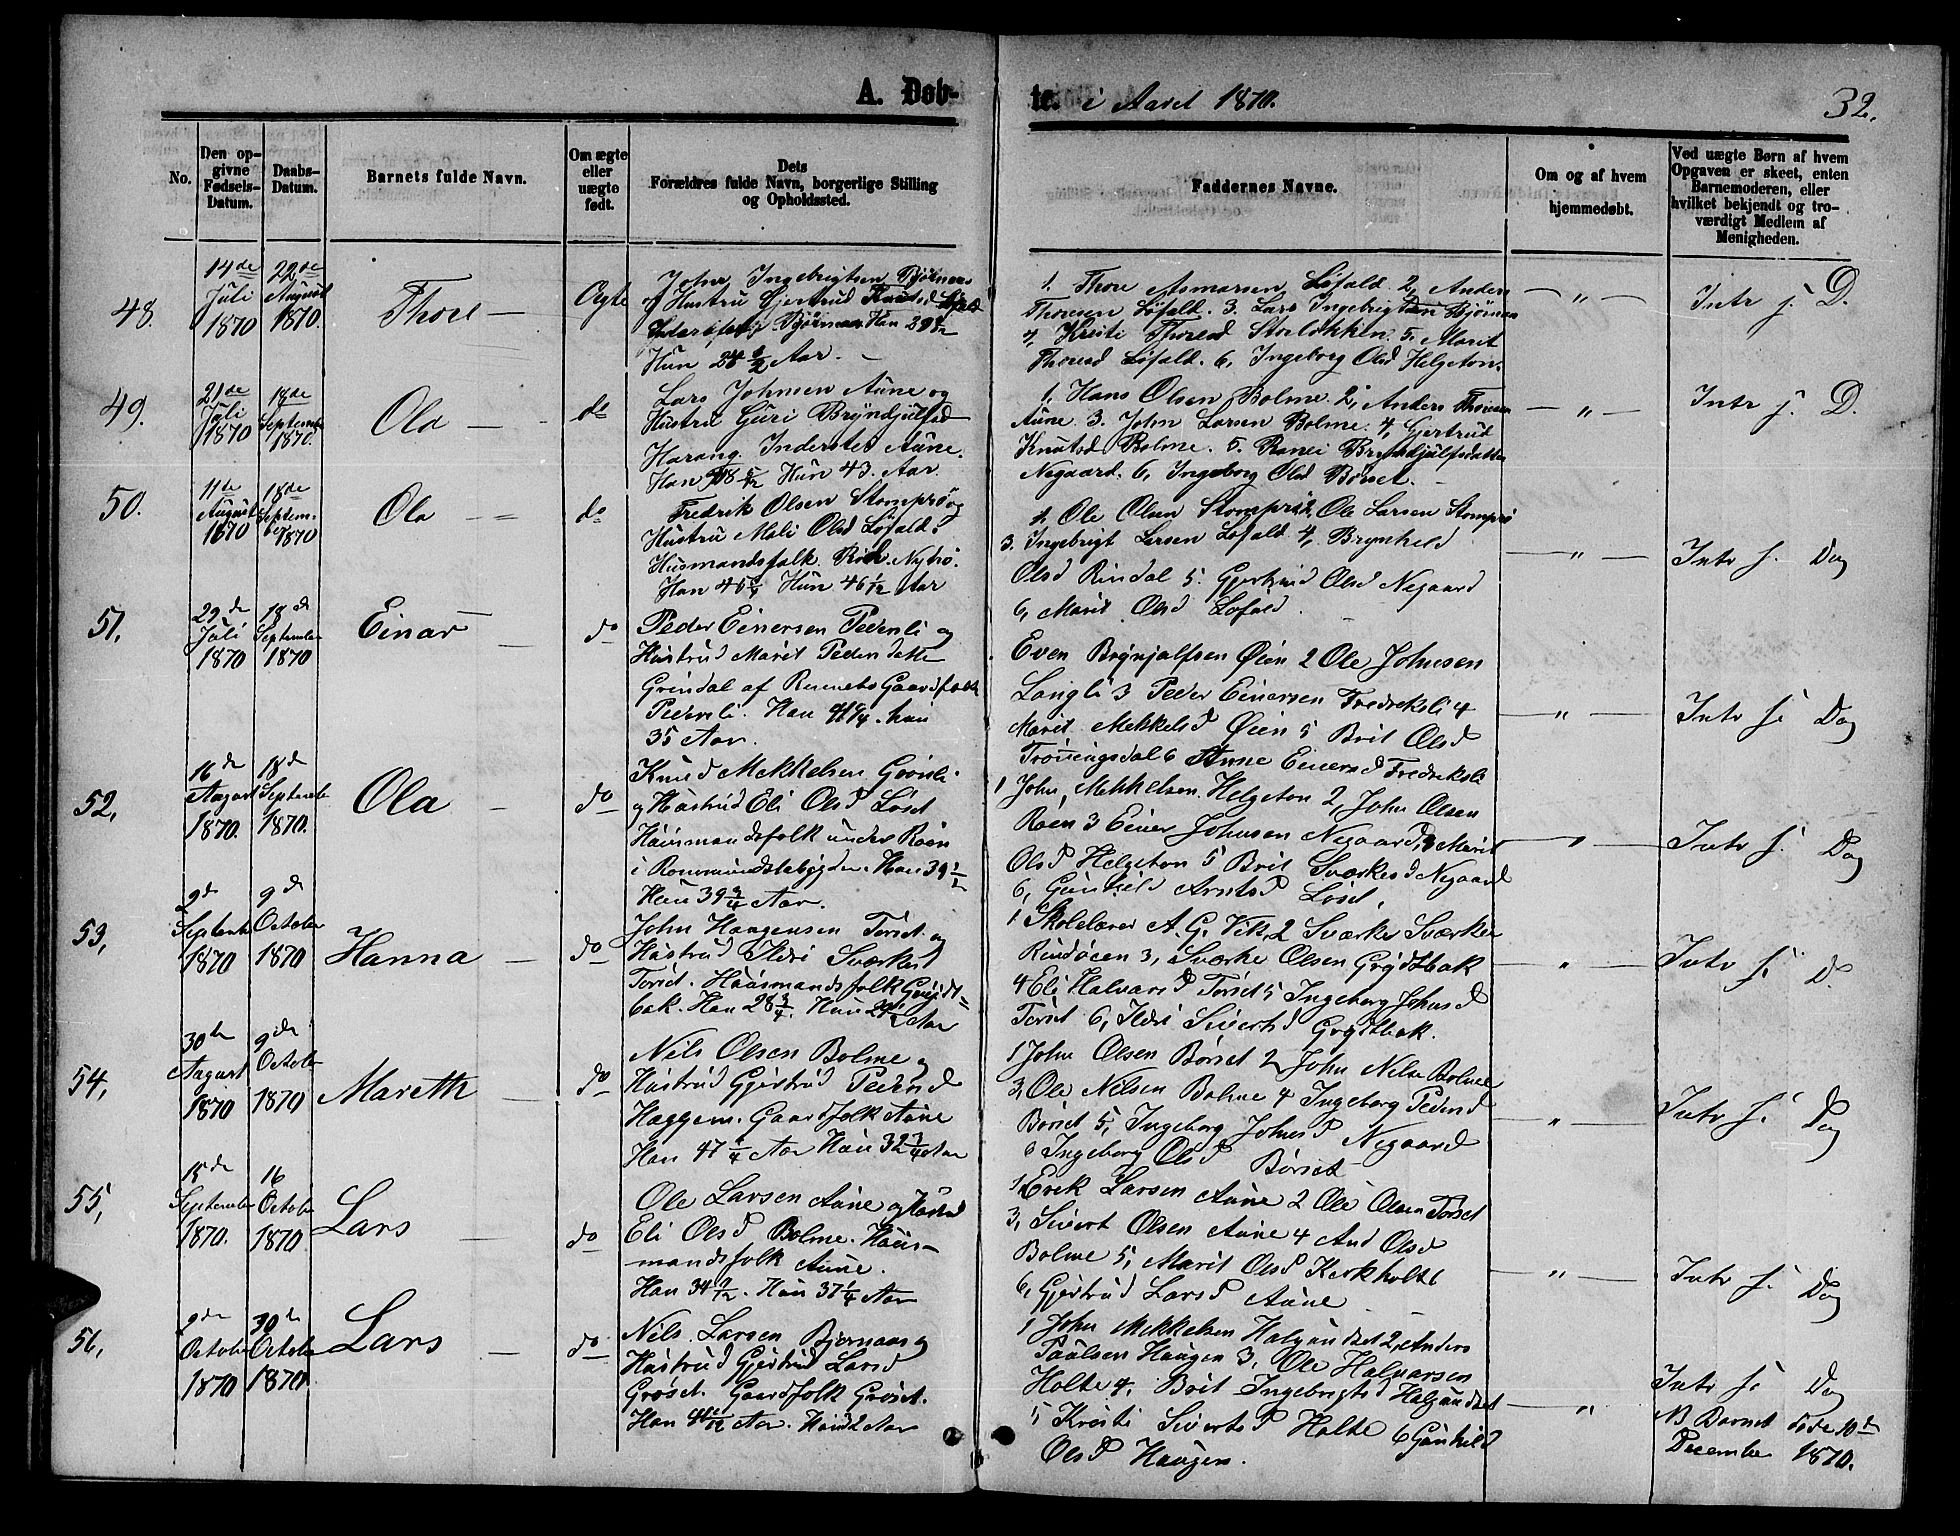 A. Døb-
te. i Aaret 1870.
32.
No.
Den op-
givne
Fødsels-
Datum.
Daabs-
Datum.
Barnets fulde Navn.
Om ægte
eller
uægte
født.
Dets
Forældres fulde Navn, borgerlige Stilling
og Opholdssted.
Faddernes Navne.
Om og af hvem
hjemmedøbt.
Ved uægte Børn af hvem
Opgaven er skeet, enten
Barnemoderen, eller
hvilket bekjendt og tro-
værdigt Medlem af
Menigheden.
48.
14de
Juli
1870
22de
August
1870.
Thore
Ægte
John Ingebrigtsen Bjørnaas
og Hustru Gjertrud
Bjørnaas Han 39
Hun 28 Aar.
1. Thore Asmarsen Løfald. 2, Anders
Thoresen Løfald. 3. Lars Ingebrigtsen Bjørnaas
4, Kristi Thoresd Storløkken. 5. Marit
Thoresd Løfald. 6, Ingeborg Olsd Helgeton.
Intr s. D.
49.
21de
Juli
1870
18de
September
1870.
Ola
do
Lars Johnsen Aune og
Hustru Guri Bryndjulfsd
Harang. Inderster Aune.
Han 5/12 Hun 43. Aar
1, Hans Olsen Bolme. 2, Anders Thoresen
Aune. 3. John Larsen Bolme. 4, Gjertrud
Knutsd Bolme. 5. Ranei Bryndjulfsdatter
Negaard. 6, Ingeborg Olsd Børset.
Intr s. D.
50.
11de
August
1870
18de
Septem-
ber 1870
Ola
do
Fredrik Olsen Stomprø og
Hustru Mali Olsd Løfald.
Husmandsfolk Nytrø.
Han 45 Hun 46 1/12 Aar
1, Ole Olsen Stomprø 2, Ole Larsen Stomprø
3. Ingebrigt Larsen Løfald 4, Brynhild
Olsd Rindal 5. Gjertrud Olsd Negaard
6, Marit Olsd Løfald.
Intr s. Dag
51.
22de
Juli
1870
18de
September
1870
Einar
do
Peder Einersen Pederli og
Hustrud Marit Pedersdatter
Grindal af Rennebo Gaardfolk
Pederli. Han 41 hun
35 Aar.
Even Brynjulfsen Øien 2 Ole Johnsen
Langli 3 Peder Einersen Fredreksli 4
Marit Mekkelsd Øien 5 Brit Olsd
Trøningsdal 6 Anne Einersd Fredreksli
Intr s. Dag
52,
16de
August
1870.
18de
September
1870.
Ola
do
Knud Mekkelsen Grønli
og Hustrud Eli Olsd Løset
Huusmandsfolk under Roen
i Rommundstabygden. Han 39 1/2
Hun 39 3/4 Aar.
1 John, Mekkelsen. Helgeton 2, John Olsen
Roen 3 Einer Johnsen Negaard, 4 Marit
Olsd Helgeton 5 Brit Sværkesd Negaard
6, Gunhild Arntsd Løset,
Intr s. Dag
53,
2de
September
1870
9de
October
1870
Hanna
do
John Haagensen Torset og
Hustrud Ildri Sværkesd
Torset. Huusmandsfolk Grytt=
bak. Han 28 3/4. Hun 24 Aar
1 Skolelærer A. G. Vik, 2 Sværke Sværkesen
Rindøien 3, Sværke Olsen Grøtbak
4 Eli Halvarsd Torset 5 Ingeborg Johnsd
Torset 6, Ildri Sivertsd Grytbak.
Intr s. D.
54,
30te
August
1870
9de
October
1870
Mareth
do
Nils Olsen Bolme og
Hustrud Gjertrud Pedersd
Haggem. Gaardfolk Aune
Han 47 1/4 Aar Hun 32 3/4 Aar
1 John Olsen Børset 2 John Nilsen Bolme
3, Ole Nilsen Bolme 4 Ingeborg Pedersd
Børset 5, Ingeborg Johnsd Negaard
6 Ingeborg Olsd Børset
Intr s. Dag
55,
15de
September
1870.
16
October
1870
Lars
do
Ole Larsen Aune og Hustrud
Eli Olsd Bolme. Huus-
mandsfolk Aune.
Han 34 . Hun 37 1/4 Aar
1, Erik Larsen Aune 2 Ole Olsen Torset
3, Sivert Olsen Aune 4 And Olsd
Bolme 5, Marit Olsd Kerkholte
6, Gjertrud Larsd Aune
Intr s. Dag
56,
2de
October
1870
30de
October
1870
Lars
do
Nils Larsen Bjørnaas og
Hustrud Gjertrud Larsd
Grøset. Gaardfolk Grøset.
Han Aar. Hun Aar
1 John Mekkelsen Halgundset 2, Anders
Paulsen Haugen 3, Ole Halvarsen
Holte 4, Brit Ingebrigtsd Halgundset
5 Kristi Sivertsd Holte 6 Gunhild
Olsd Haugen.
Intr s. Dag
NB Barnet døde 10de
December 1870.